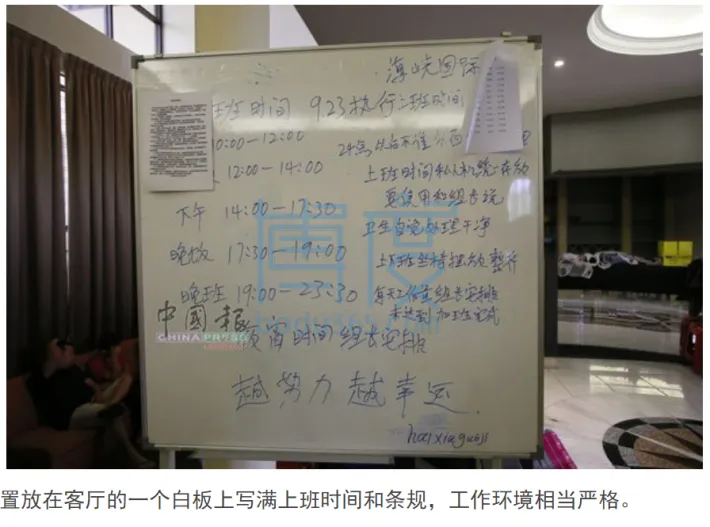 海峡国际
班时间 9.23执行三班时间
10:00-12:00
24点以后不准
12:00-14:00
上班时间私人机统一存放
要使用和组长说
下午 14:00-17:30
卫生自觉处理干净
晚饭 17:30-19:00
上下班坐椅摆放整齐
晚班 19:00-23:30
每天工作量组长安排
未达到加班完成
中國報
CHINA PRESS
时间组长安排
越努力越幸运
haixiaguoji
置放在客厅的一个白板上写满上班时间和条规，工作环境相当严格。